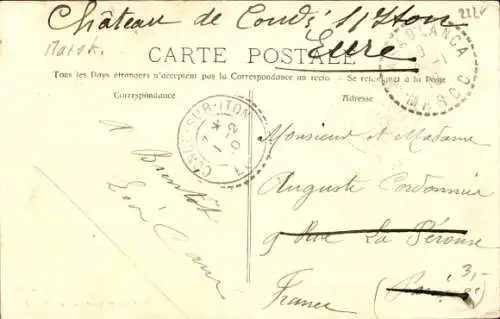 Château de Condé s/Iton
222
Eure
Marok.
CARTE POSTALE
Tous les Pays étrangers n'acceptent pas la Correspondance au recto - Se renseigner à la Poste
Correspondance
Adresse
CASABLANCA
MAROC
CONDÉ-SUR-ITON
Monsieur et Madame
Auguste Cordonnier
9 Rue La Pérouse
(Paris)
France
3,-
à
Bientôt